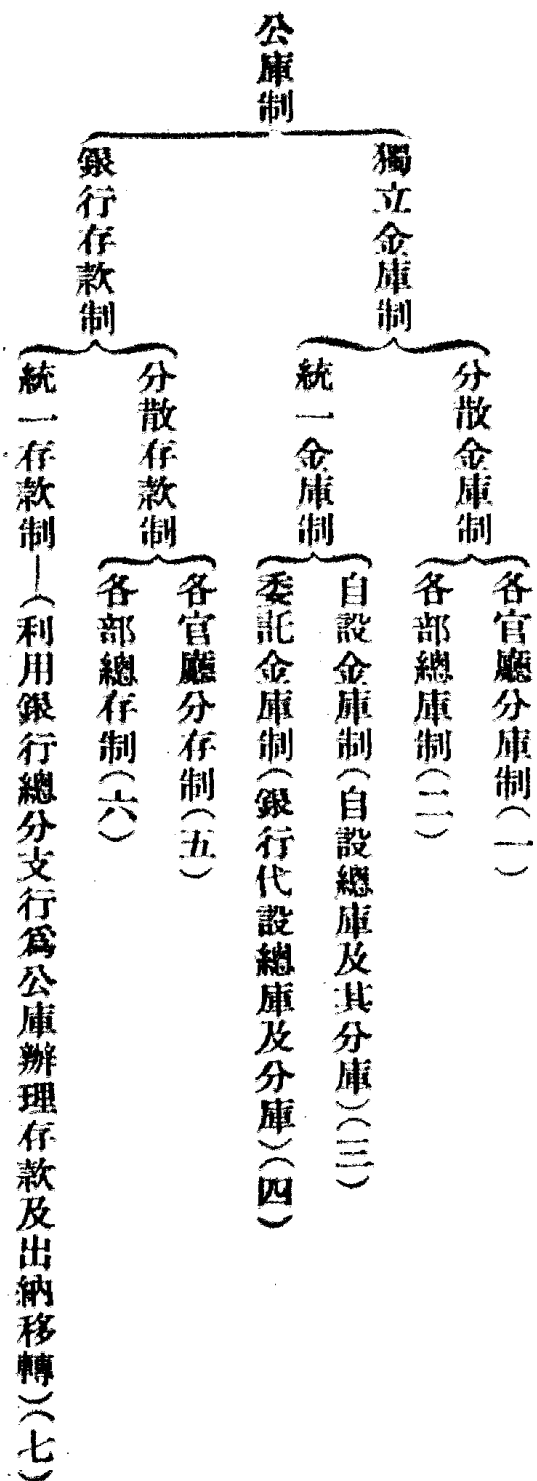 公庫制
獨立金庫制
分散金庫制
各官廳分庫制(一)
各部總庫制(二)
統一金庫制
自設金庫制(自設總庫及其分庫)(三)
委託金庫制(銀行代設總庫及分庫)(四)
銀行存款制
分散存款制
各官廳分存制(五)
各部總存制(六)
統一存款制—(利用銀行總分支行爲公庫辦理存款及出納移轉)(七)